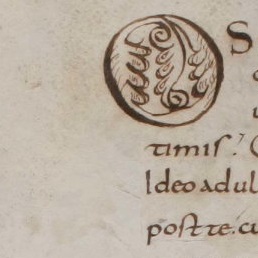 OS
timis.
Ideo adul
post te. cu